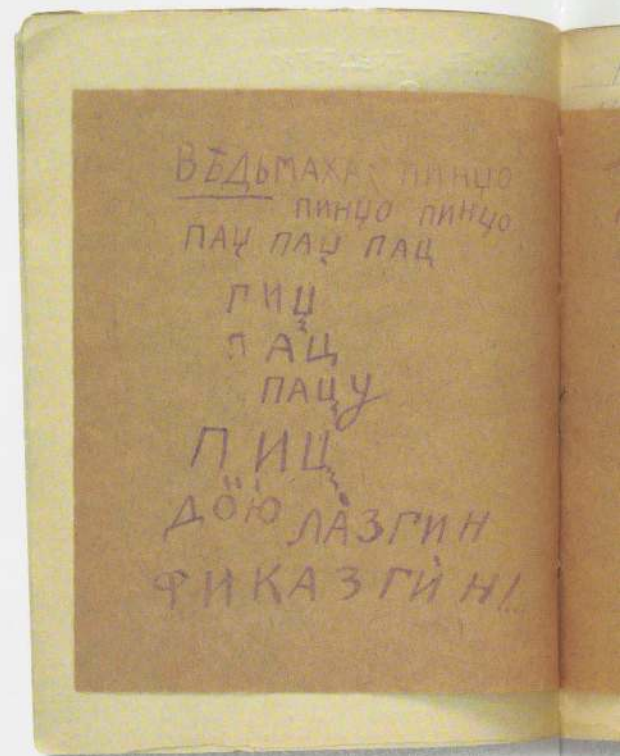 ВѢДЬМАХА: ПИНЦО
ПИНЦО ПИНЦО
ПАЦ ПАЦ ПАЦ
ПИЦ
ПАЦ
ПАЦУ
ПИЦ
ДӦЮ ЛАЗГИН
ФИКАЗГИН!